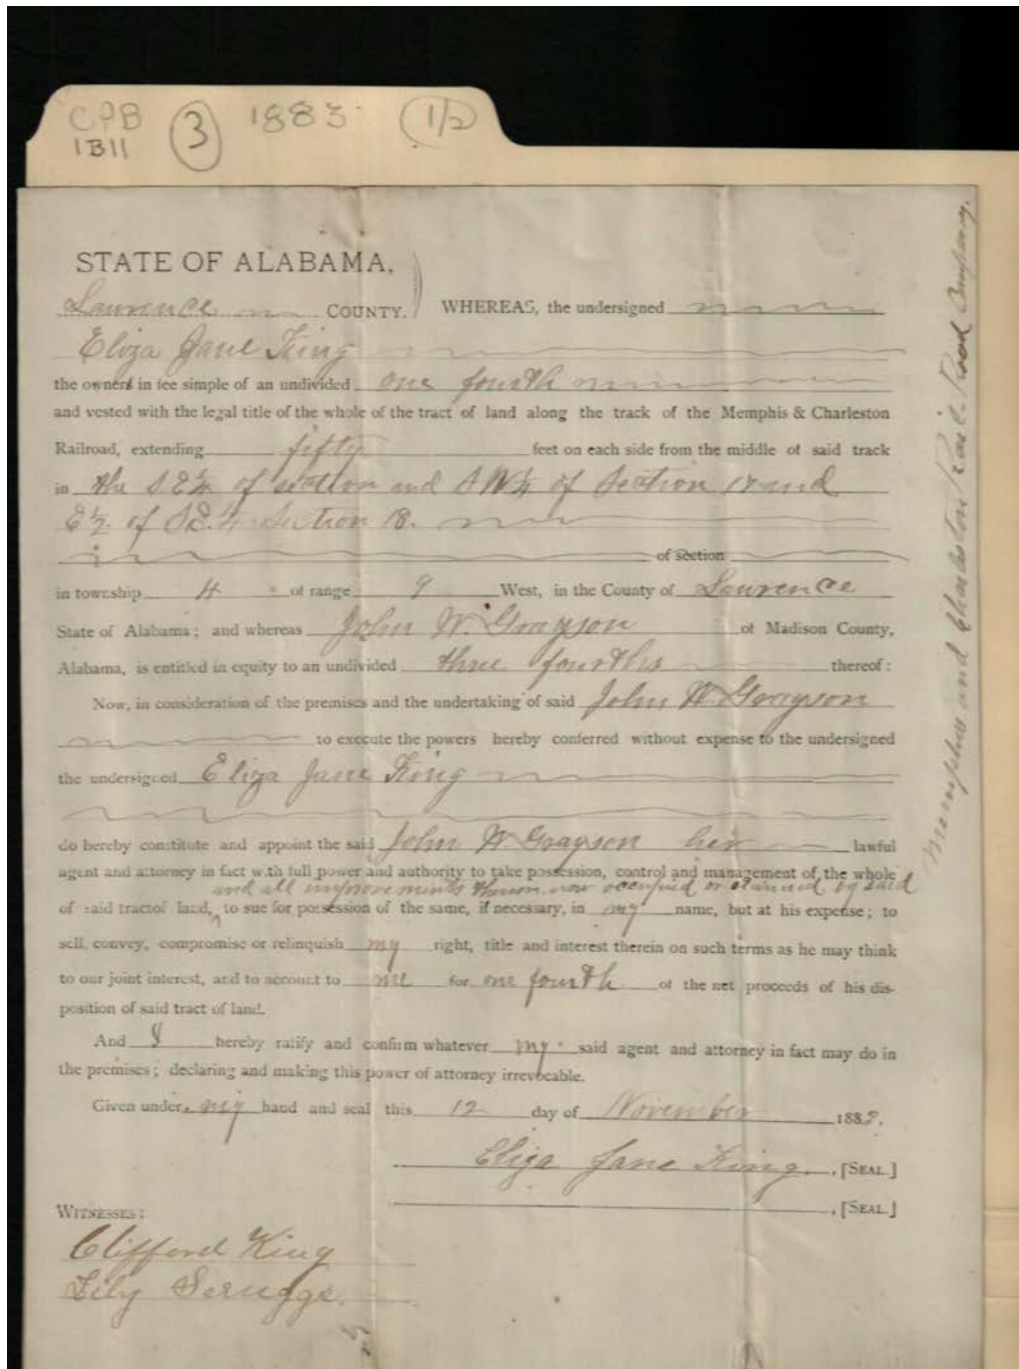 CPB
1B11
3
1883
(1/2)
STATE OF ALABAMA,
Lawrence COUNTY. WHEREAS, the undersigned
Eliza Jane King
the owners in fee simple of an undivided one fourth
and vested with the legal title of the whole of the tract of land along the track of the Memphis & Charleston
Railroad, extending fifty feet on each side from the middle of said track
in the S E ¼ of section and S W ¼ of Section 17 and
E ½ of S E ¼ Section 18.
of section
in township 4 of range 9 West, in the County of Lawrence
State of Alabama; and whereas John W. Grayson of Madison County,
Alabama, is entitled in equity to an undivided three fourths thereof:
Now, in consideration of the premises and the undertaking of said John W. Grayson
to execute the powers hereby conferred without expense to the undersigned
the undersigned Eliza Jane King
do hereby constitute and appoint the said John W. Grayson her lawful
agent and attorney in fact with full power and authority to take possession, control and management of the whole
and all improvements thereon now occupied or claimed by said
of said tract of land, ^ to sue for possession of the same, if necessary, in my name, but at his expense; to
sell, convey, compromise or relinquish my right, title and interest therein on such terms as he may think
to our joint interest, and to account to me for one fourth of the net proceeds of his dis-
position of said tract of land.
And I hereby ratify and confirm whatever my said agent and attorney in fact may do in
the premises; declaring and making this power of attorney irrevocable.
Given under my hand and seal this 12 day of November 188
Eliza Jane King, [SEAL.]
, [SEAL.]
WITNESSES:
Clifford King
Lily Scruggs.
Memphis and Charleston Rail-Road Company.